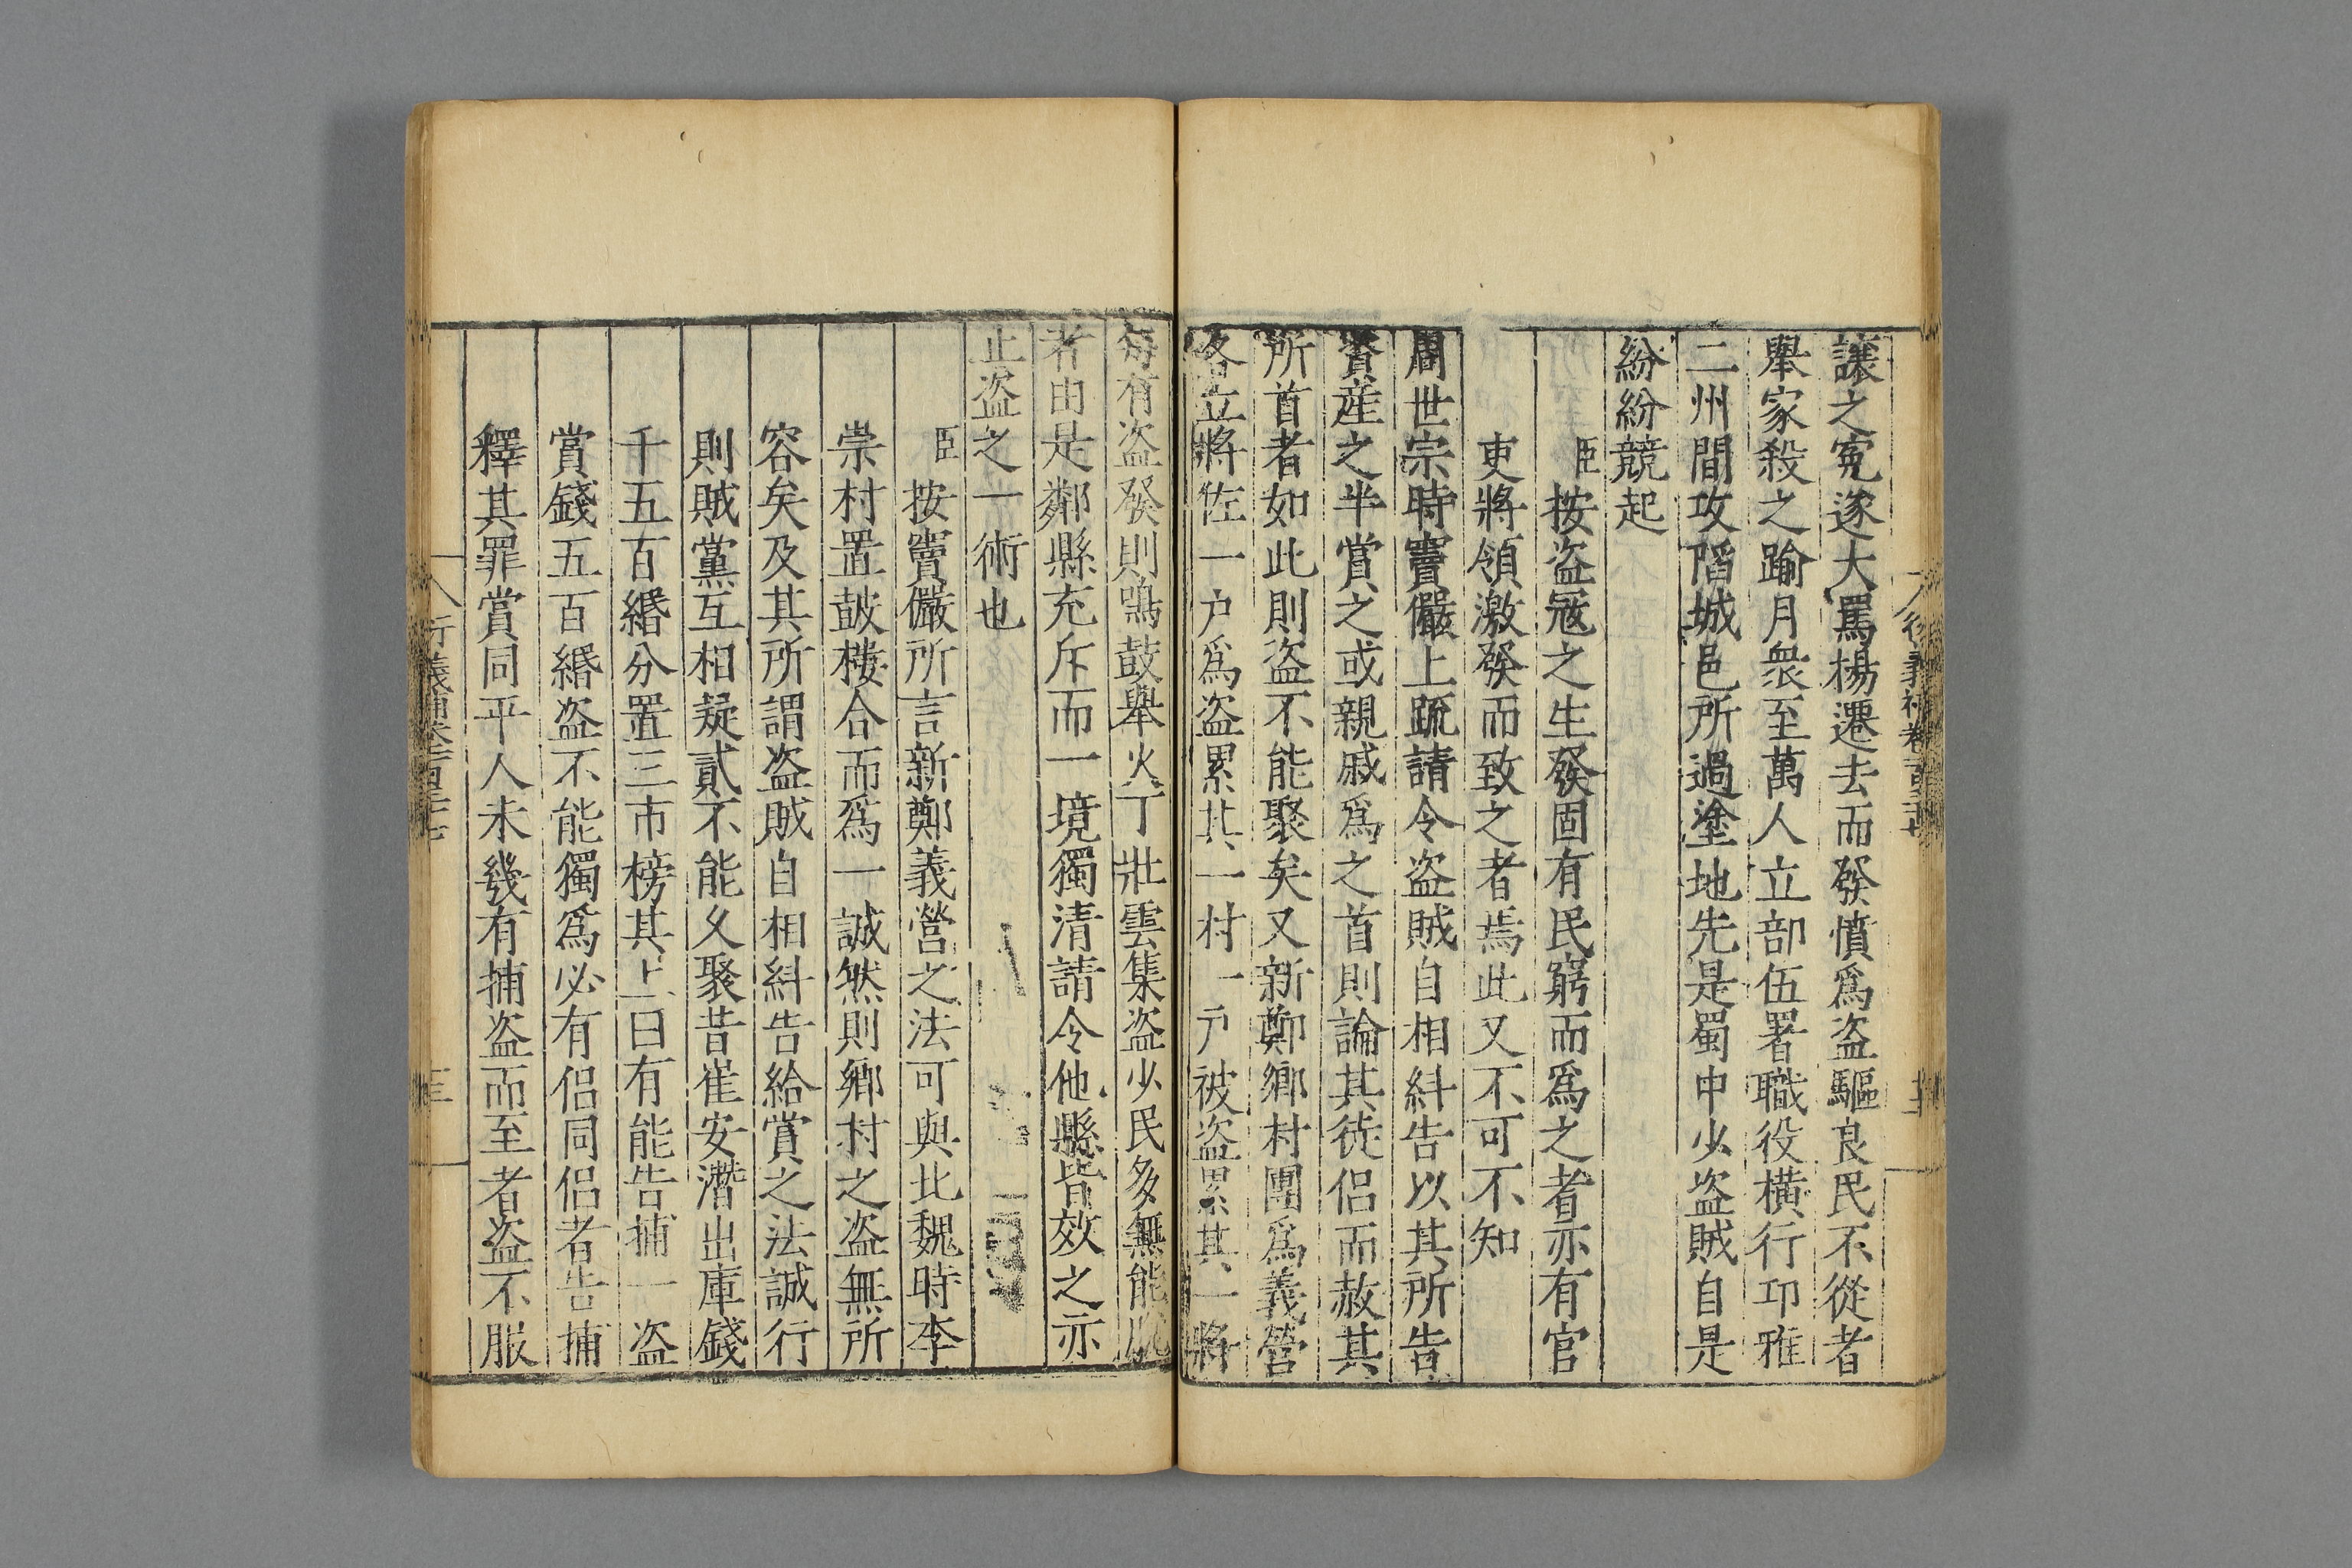 讓之寃遂大罵楊遷去而發憤爲盗驅良民不從者
舉家殺之踰月衆至萬人立部伍署職役横行卭雅
二州間攻陷城邑所過塗地先是蜀中少盗賊自是
紛紛競起
臣按盗冦之生發固有民窮而爲之者亦有官
吏將領激發而致之者焉此又不可不知
周世宗時竇儼上䟽請令盗賊自相糾告以其所告
資産之半賞之或親戚爲之首則論其徒侣而赦其
所首者如此則盗不能聚矣又新鄭鄉村團爲義營
各立將佐一户爲盗累其一村一户被盗累其一將
每有盗發則鳴鼓舉火丁壯雲集盗少民多無能脱
者由是鄰縣充斥而一境獨清請令他縣皆效之亦
止盗之一術也
臣按竇儼所言新鄭義營之法可與北魏時李
崇村置鼓樓合而爲一誠然則鄉村之盗無所
容矣及其所謂盗賊自相糾告給賞之法誠行
則賊黨互相疑貳不能久聚昔崔安潛出庫錢
千五百緡分置三市榜其上曰有能告捕一盗
賞錢五百緡盗不能獨爲必有侣同侣者告捕
釋其罪賞同平人未幾有捕盗而至者盗不服